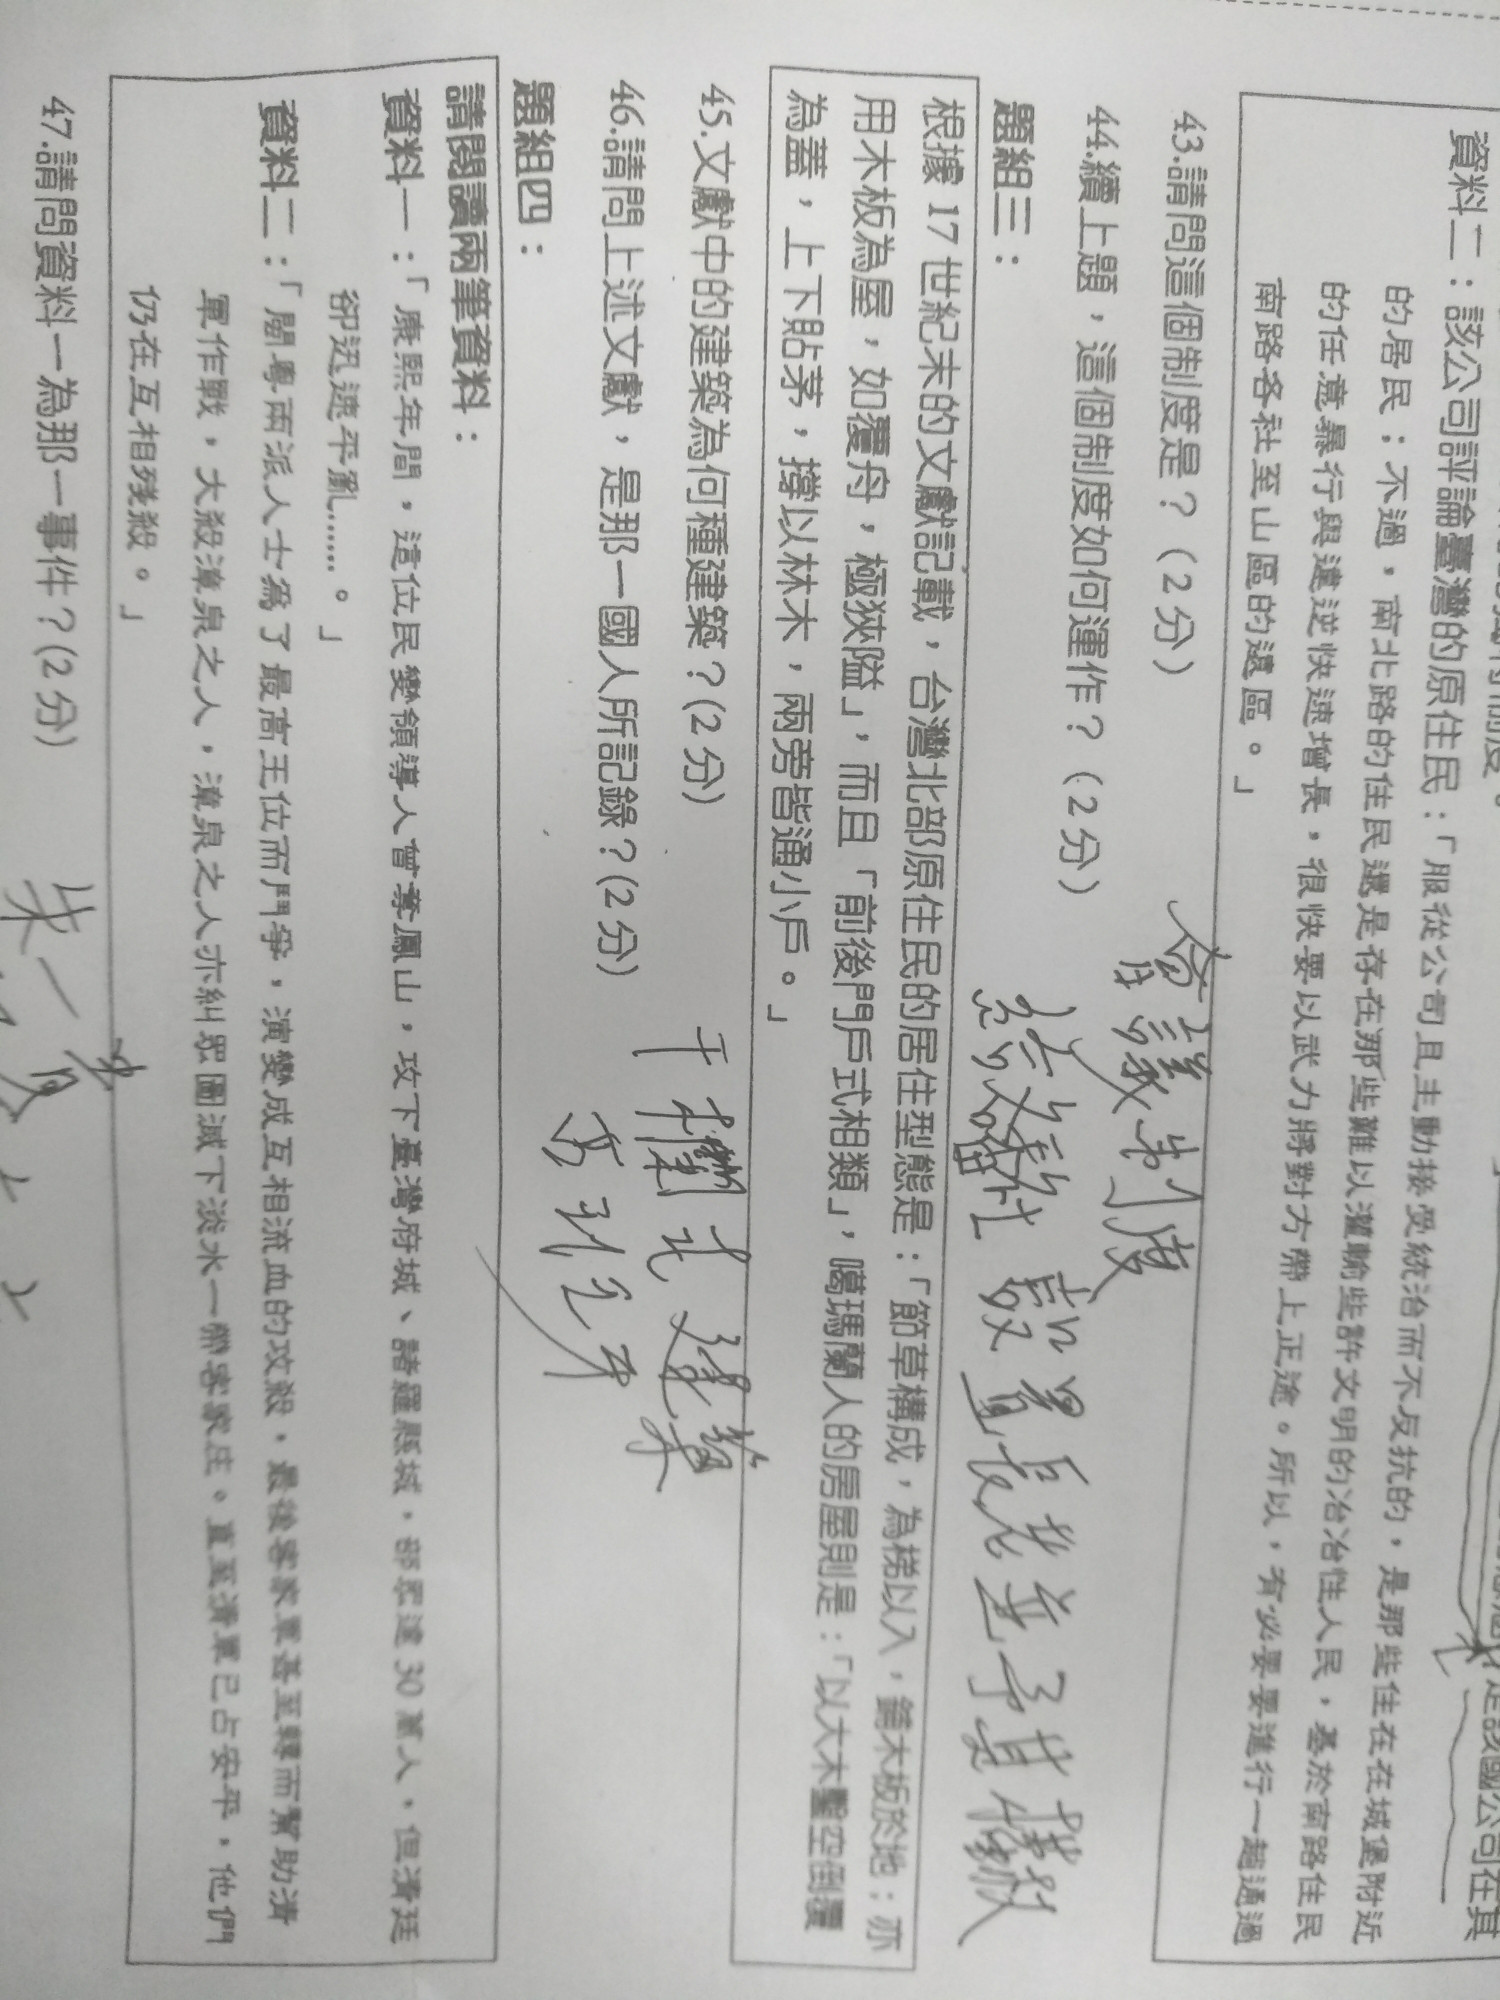 資料二：該公司評論臺灣的原住民：「服從公司且主動接受統治而不反抗的，是那些住在在城堡附近
的居民；不過，南北路的住民還是存在那些難以灌輸些許文明的冶冶性人民，基於南路住民
的任意暴行與違逆快速增長，很快要以武力將對方帶上正途。所以，有必要要進行一趟通過
南路各社至山區的遠區。」
43.請問這個制度是？（2分）
會議制度
44.續上題，這個制度如何運作？（2分）
設置長老並予其權
題組三：
根據 17 世紀末的文獻記載，台灣北部原住民的居住型態是：「節草構成，為梯以入，鋪木板於地；亦
用木板為屋，如覆舟，極狹隘」，而且「前後門戶式相類」，噶瑪蘭人的房屋則是：「以大木鑿空倒覆
為蓋，上下貼茅，撐以林木，兩旁皆通小戶。」
45.文獻中的建築為何種建築？(2分)
干欄式建築
46.請問上述文獻，是那一國人所記錄？(2分)
西班牙
題組四：
請閱讀兩筆資料：
資料一：「康熙年間，這位民變領導人曾奪鳳山，攻下臺灣府城、諸羅縣城，部眾達 30 萬人，但清廷
卻迅速平亂……。」
資料二：「閩粵兩派人士為了最高王位而鬥爭，演變成互相流血的攻殺，最後客家軍甚至轉而幫助清
軍作戰，大殺漳泉之人，漳泉之人亦糾眾圖滅下淡水一帶客家庄。直至清軍已占安平，他們
仍在互相殘殺。」
47.請問資料一為那一事件？(2分)
朱一貴